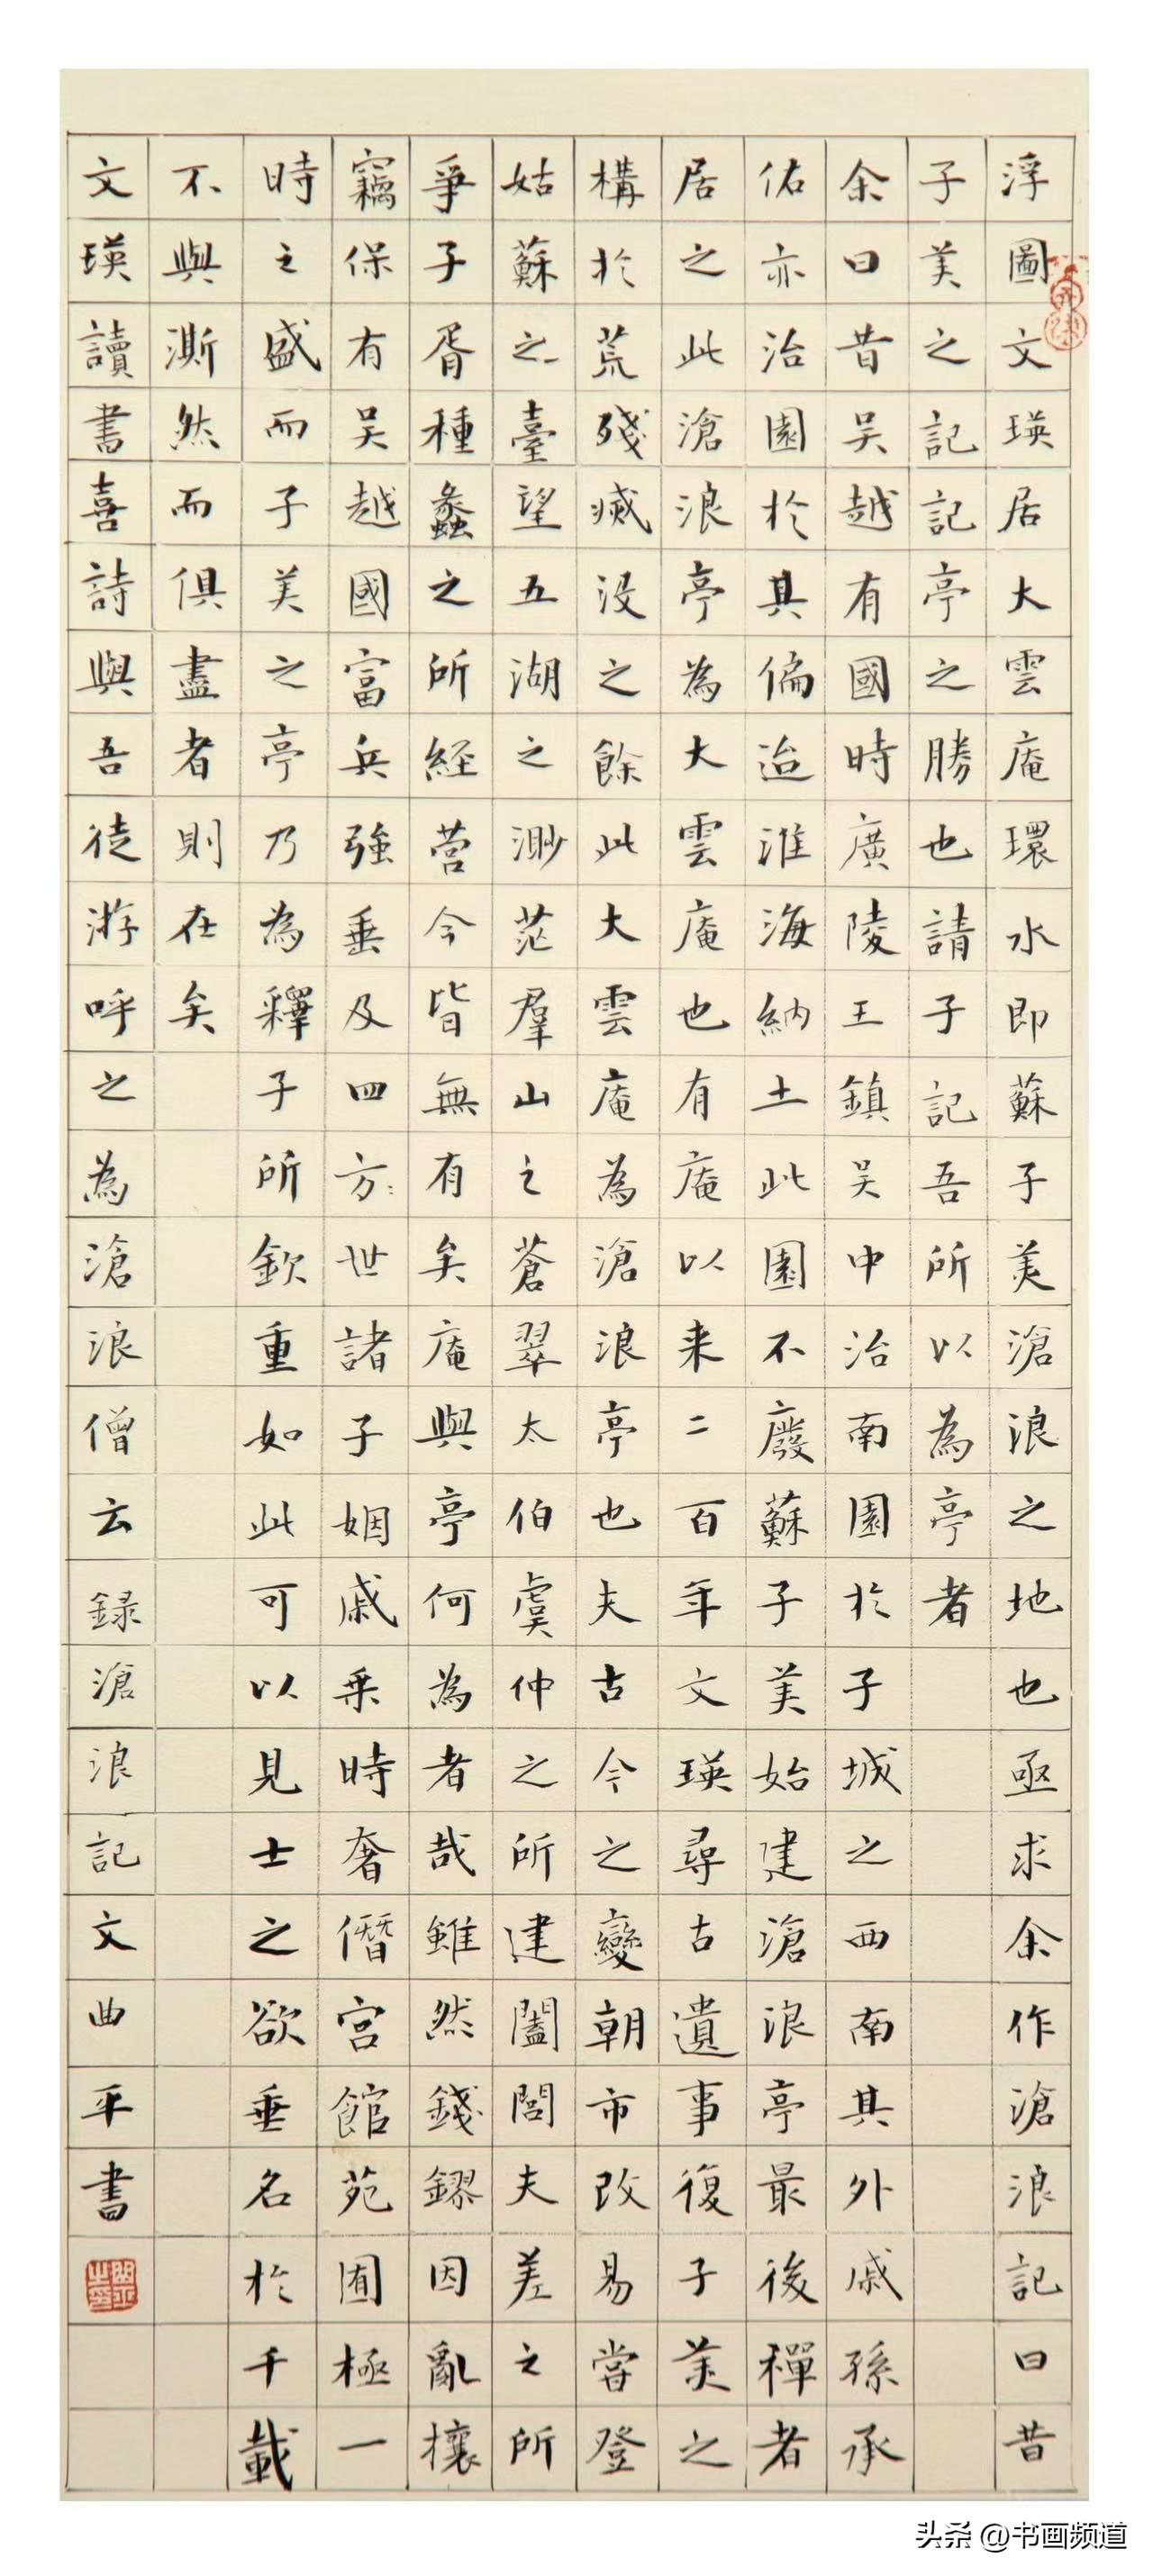 浮圖文瑛居大雲庵環水即蘇子美滄浪之地也亟求余作滄浪記曰昔
子美之記記亭之勝也請子記吾所以為亭者
余曰昔吳越有國時廣陵王鎮吳中治南園於子城之西南其外戚孫承
佑亦治園於其偏迨淮海納土此園不廢蘇子美始建滄浪亭最後禪者
居之此滄浪亭為大雲庵也有庵以来二百年文瑛尋古遺事復子美之
構於荒殘滅没之餘此大雲庵為滄浪亭也夫古今之變朝市改易嘗登
姑蘇之臺望五湖之渺茫羣山之蒼翠太伯虞仲之所建闔閭夫差之所
爭子胥種蠡之所経營今皆無有矣庵與亭何為者哉雖然錢鏐因亂攘
竊保有吳越國富兵強垂及四方世諸子姻戚乗時奢僭宮館苑囿極一
時之盛而子美之亭乃為釋子所欽重如此可以見士之欲垂名於千載
不與澌然而俱盡者則在矣
文瑛讀書喜詩與吾徒游呼之為滄浪僧云録滄浪記文曲平書
头条 @书画频道